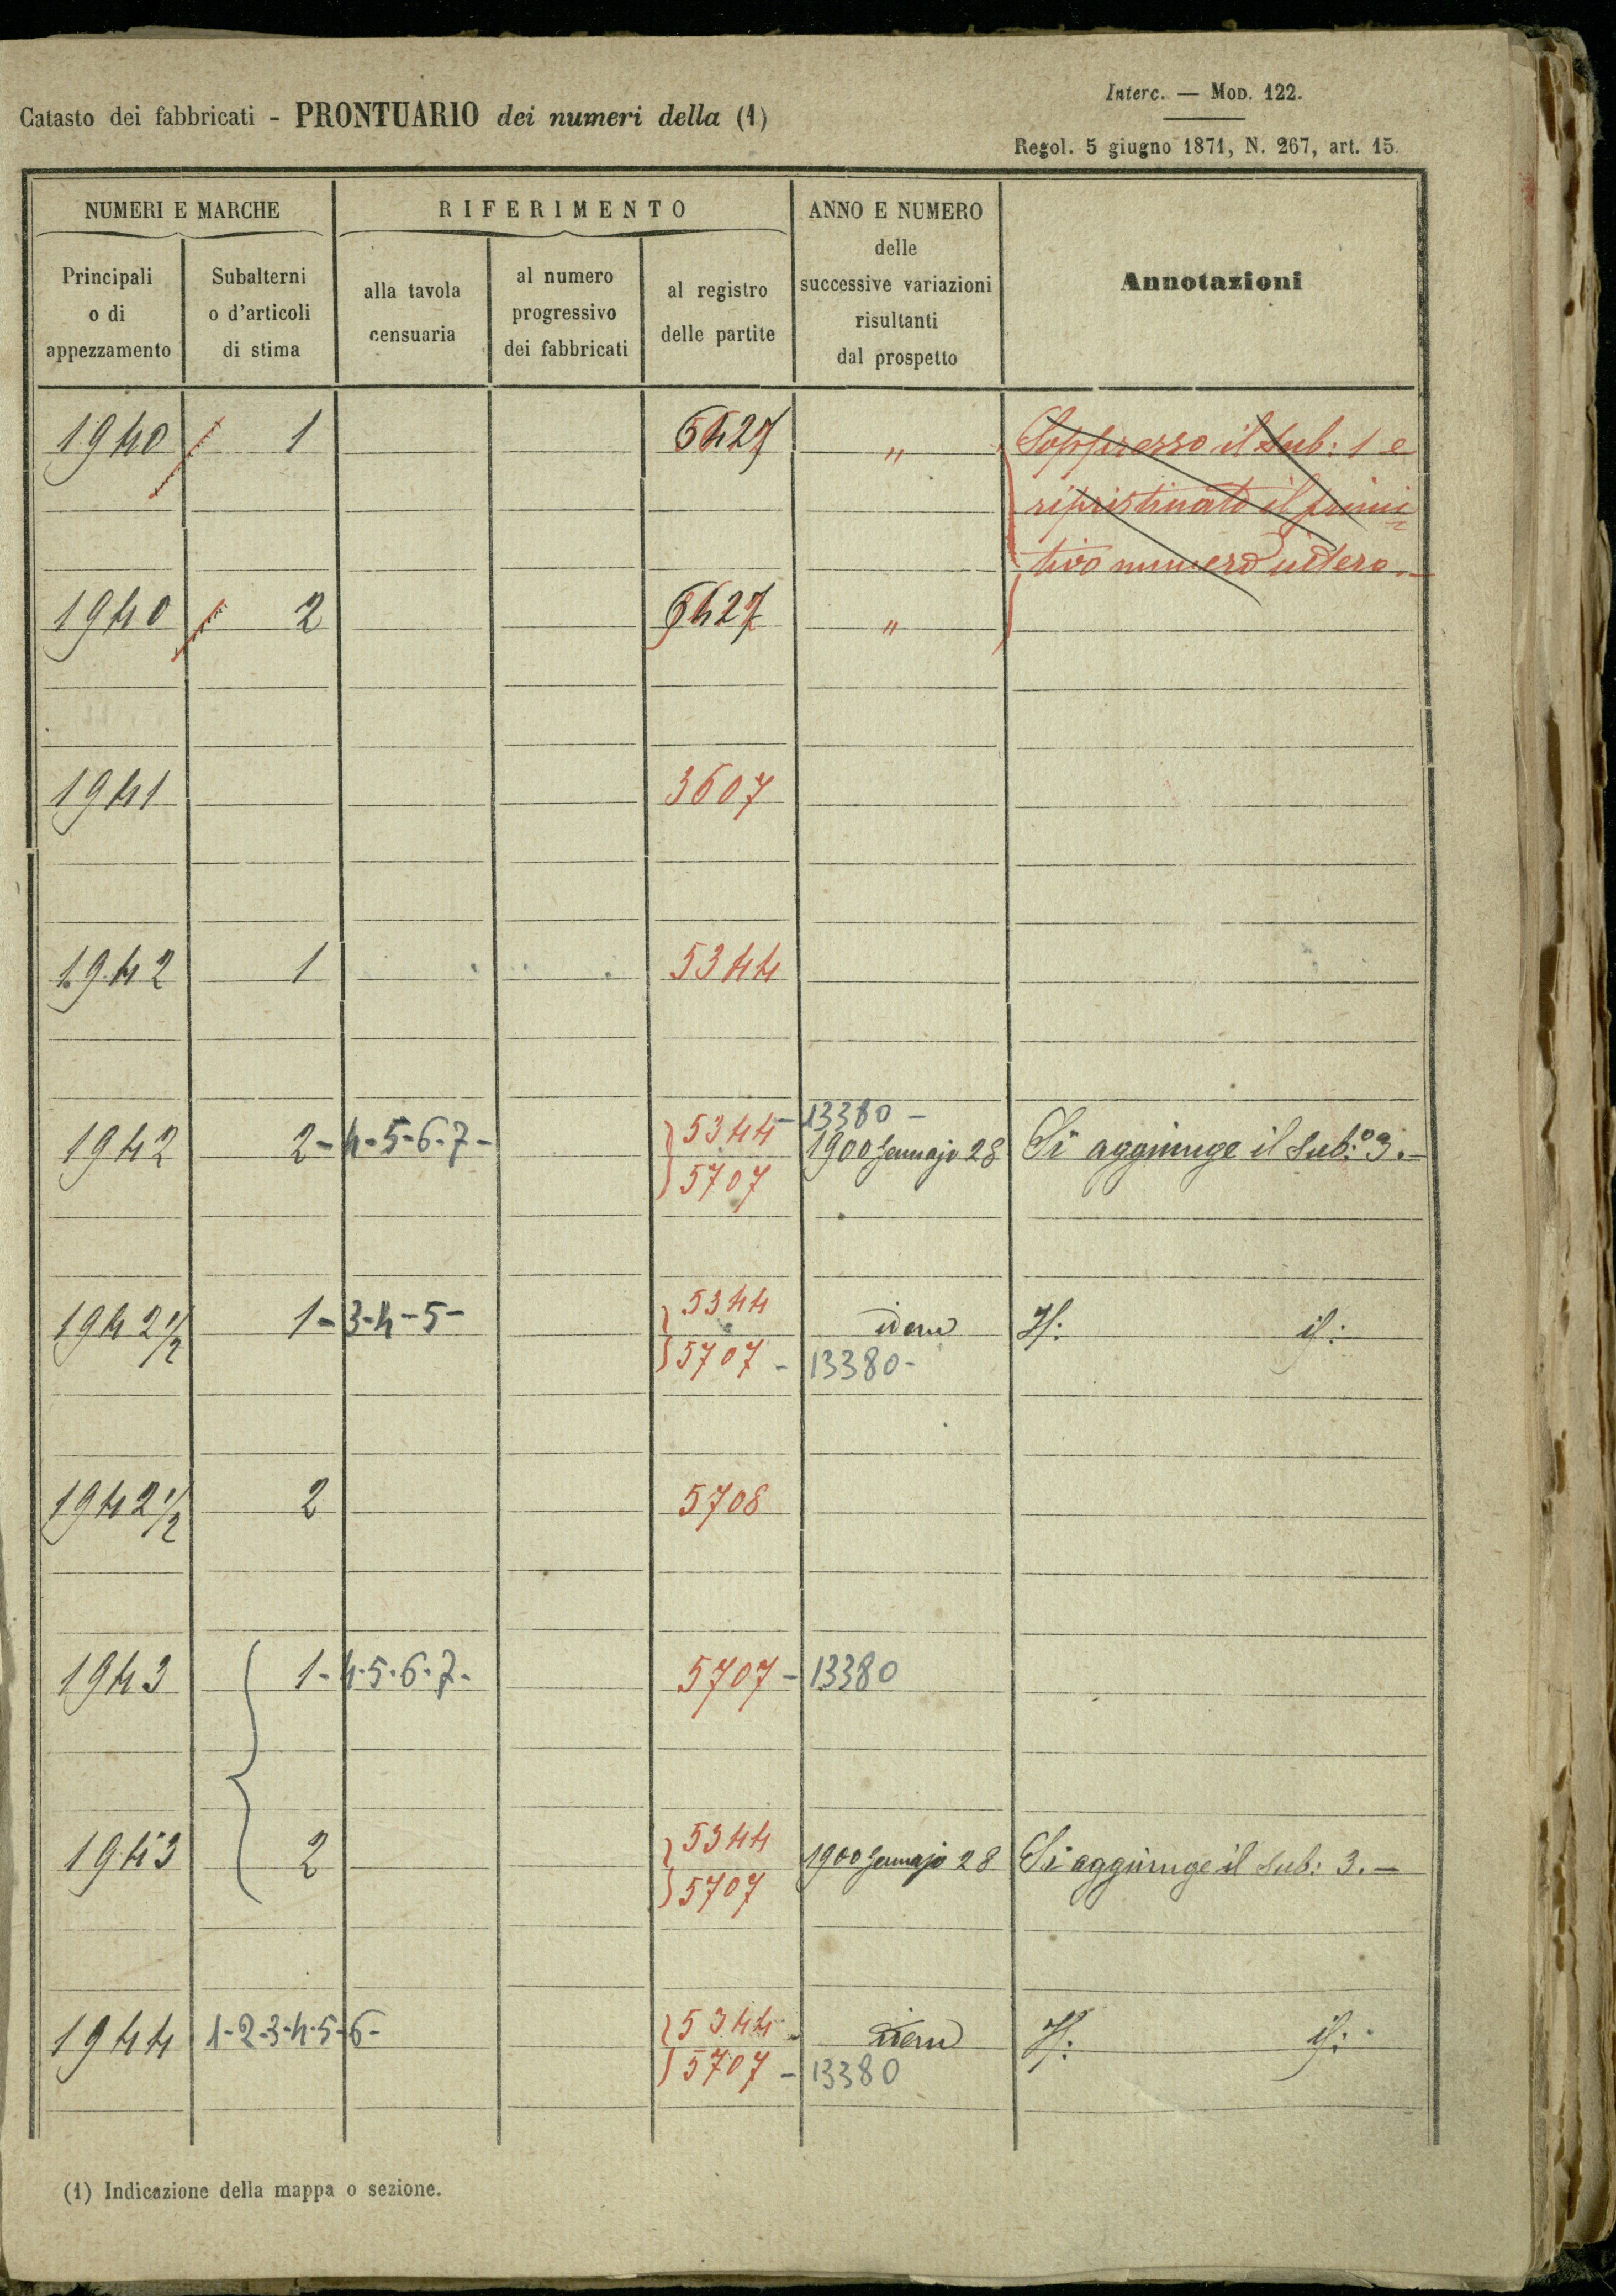 Interc. — Mod. 122.
Catasto dei fabbricati - PRONTUARIO dei numeri della (1)
Regol. 5 giugno 1871, N. 267, art. 15.
NUMERI E MARCHE
RIFERIMENTO
ANNO E NUMERO
delle
successive variazioni
risultanti
dal prospetto
Annotazioni
Principali
o di
appezzamento
Subalterni
o d'articoli
di stima
alla tavola
censuaria
al numero
progressivo
dei fabbricati
al registro
delle partite
1940 1 6427 " Soppresso il sub: 1 e
ripristinato il primi
tivo numero intero.
1940 2 6427 "
1941 3607
1942 1 5344
1942 2-4-5-6-7- 5344-13380-
5707 1900 Gennajo 28 Si aggiunge il sub.º 3.-
1942 1/2 1-3-4-5- 5344 idem If: if:
5707 - 13380-
1942 1/2 2 5708
1943 1-4-5-6-7- 5707-13380
1943 2 5344 1900 Gennajo 28 Si aggiunge il sub: 3.-
5707
1944 1-2-3-4-5-6- 5344 idem If: if:
5707 - 13380
(1) Indicazione della mappa o sezione.